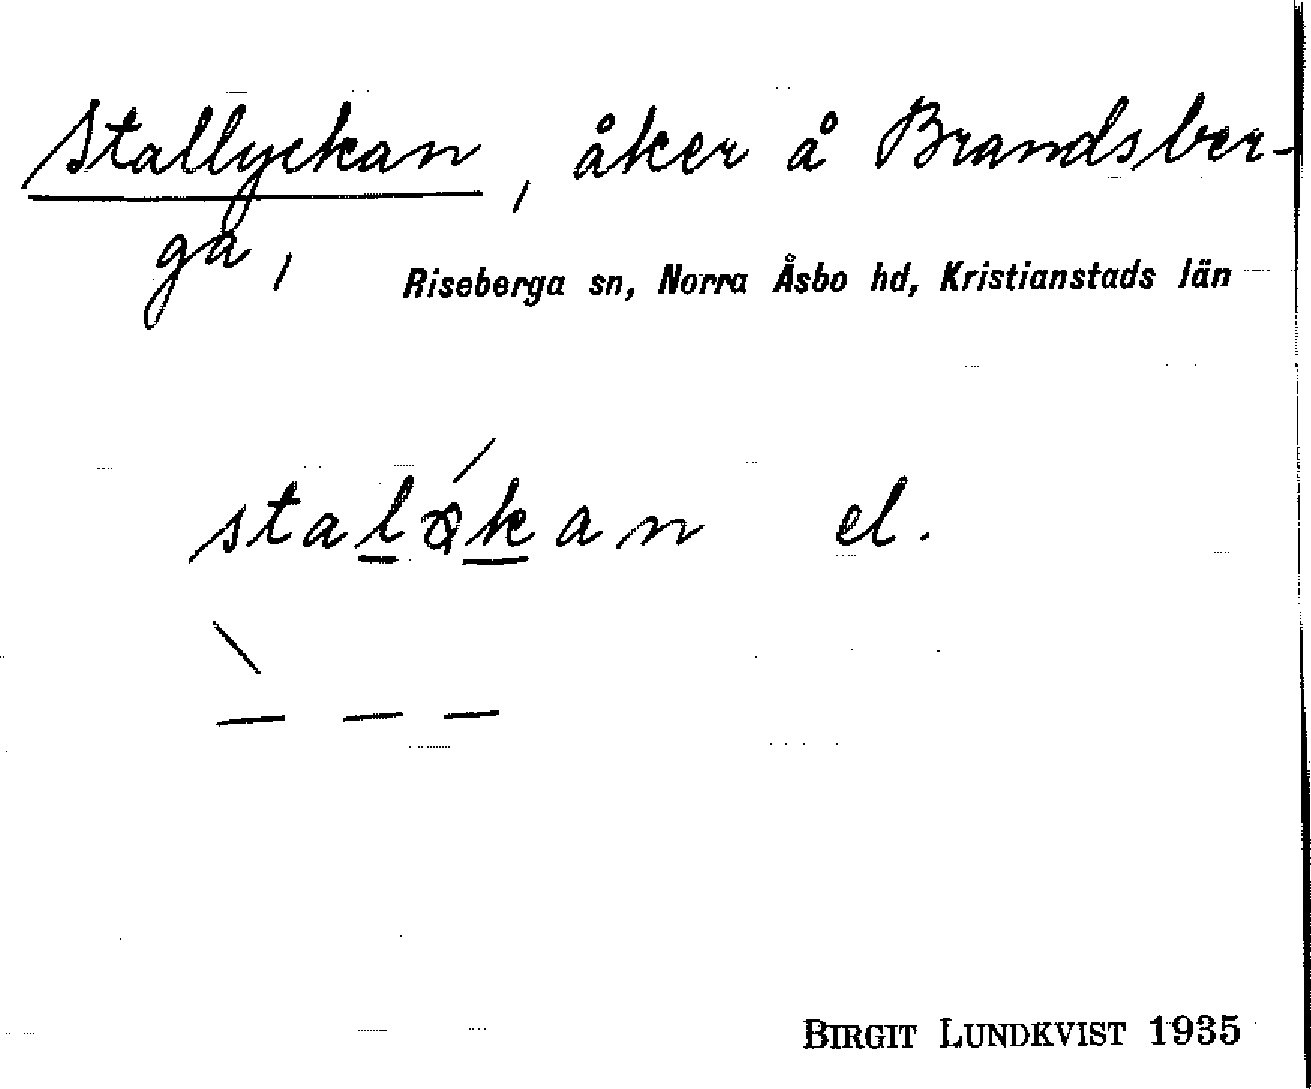 Stallyckan, åker å Brandsber-
ga,
Riseberga sn, Norra Åsbo hd, Kristianstads län
stalökan el.
\
— — —
BIRGIT LUNDKVIST 1935